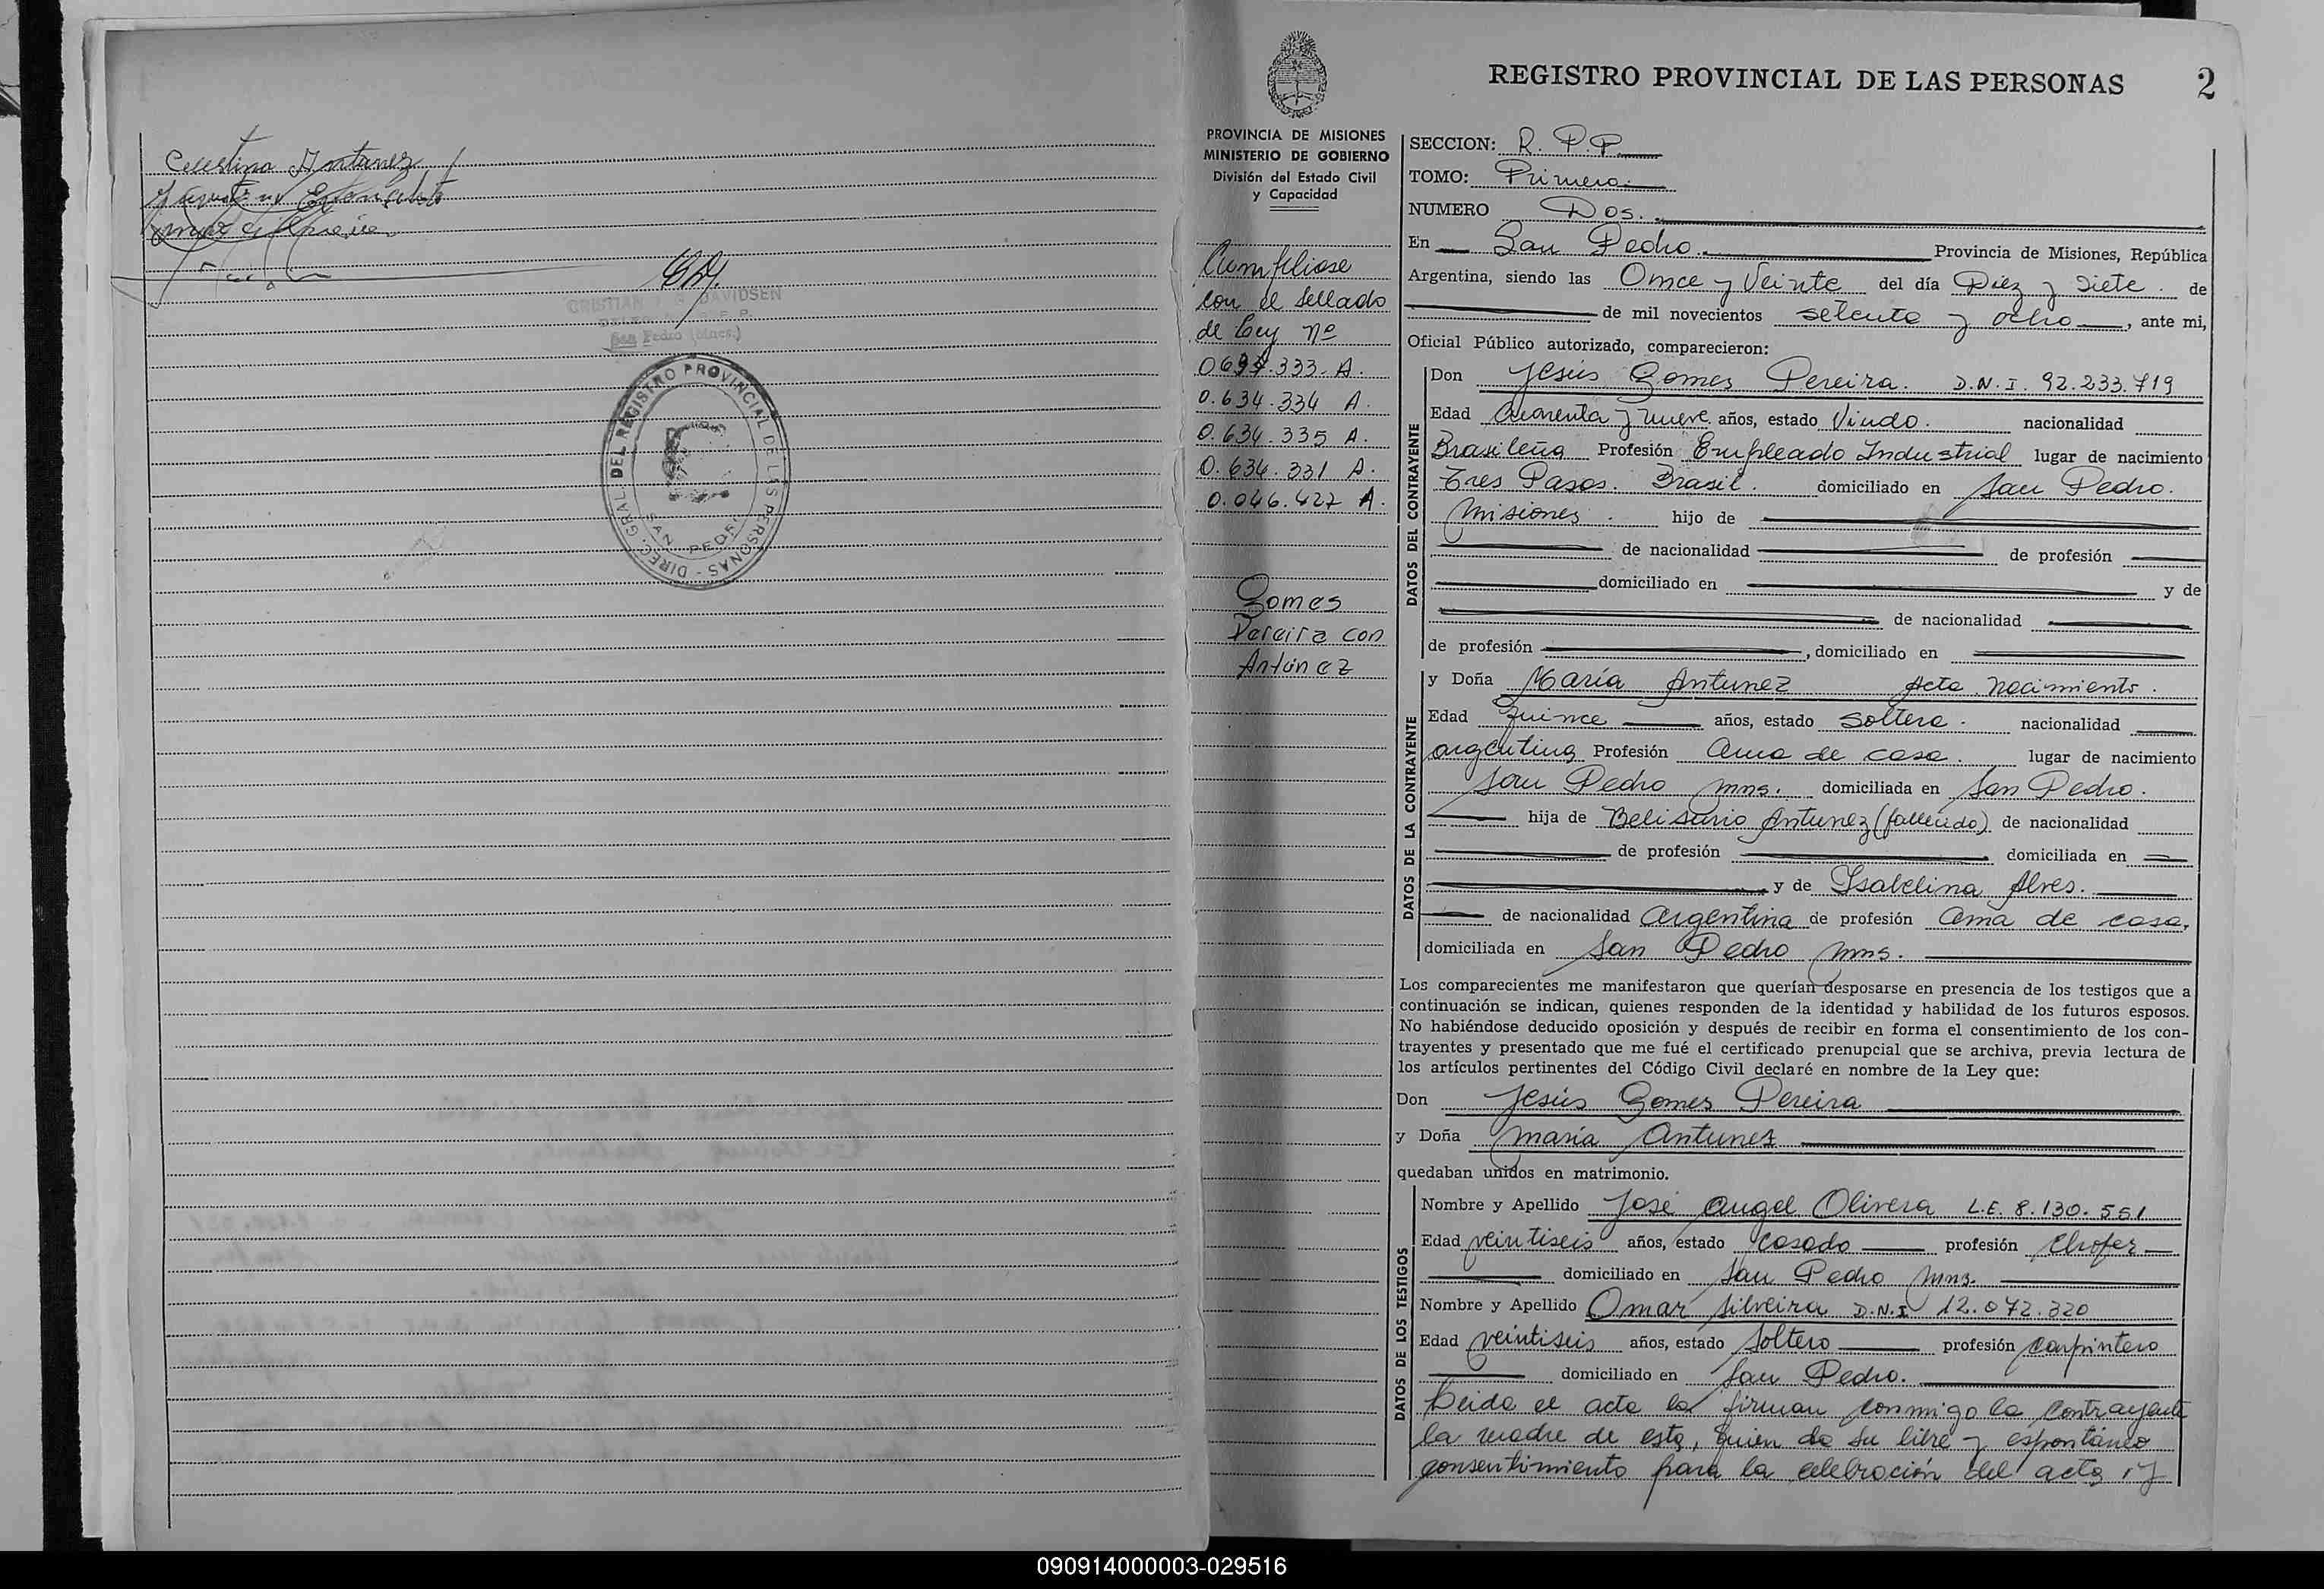 Celestina Antunez
CRISTIAN DAVIDSEN
San Pedro (Mnes.)
DIREC. GRAL. DEL REGISTRO PROVINCIAL DE LAS PERSONAS -
SAN PEDRO
REGISTRO PROVINCIAL DE LAS PERSONAS 2
PROVINCIA DE MISIONES
MINISTERIO DE GOBIERNO
División del Estado Civil
y Capacidad
Cumpliose
con el Sellado
de Ley Nº
333. A.
0.634.334 A.
0.634.335 A.
0.634.331 A.
0.046.427 A.
Gomes
Pereira con
Antúnez
SECCION: R. P. P.
TOMO: Primero
NUMERO Dos.
En San Pedro. Provincia de Misiones, República
Argentina, siendo las Once y Veinte del día Diez y Siete. de
de mil novecientos setenta y ocho, ante mi,
Oficial Público autorizado, comparecieron:
DATOS DEL CONTRAYENTE
Don Jesús Gomes Pereira. D.N.I. 92.233.719
Edad Cuarenta y nueve años, estado Viudo. nacionalidad
Brasileña Profesión Empleado Industrial lugar de nacimiento
Tres Pasos. Brasil. domiciliado en San Pedro.
Misiones. hijo de
de nacionalidad de profesión
domiciliado en y de
de nacionalidad
de profesión , domiciliado en
DATOS DE LA CONTRAYENTE
y Doña María Antunez Acta nacimiento.
Edad Quince años, estado Soltera. nacionalidad
argentina Profesión Ama de casa. lugar de nacimiento
San Pedro Mns. domiciliada en San Pedro.
hija de Belisario Antunez (fallecido) de nacionalidad
de profesión domiciliada en
y de Isabelina Alves.
de nacionalidad Argentina de profesión Ama de casa,
domiciliada en San Pedro Mns.
Los comparecientes me manifestaron que querían desposarse en presencia de los testigos que a
continuación se indican, quienes responden de la identidad y habilidad de los futuros esposos.
No habiéndose deducido oposición y después de recibir en forma el consentimiento de los con-
trayentes y presentado que me fué el certificado prenupcial que se archiva, previa lectura de
los artículos pertinentes del Código Civil declaré en nombre de la Ley que:
Don Jesús Gomes Pereira
y Doña María Antunez
quedaban unidos en matrimonio.
DATOS DE LOS TESTIGOS
Nombre y Apellido José Angel Olivera L.E. 8.130.551
Edad veintiseis años, estado Casado profesión Chofer
domiciliado en San Pedro Mns.
Nombre y Apellido Omar Silveira D.N.I 12.072.320
Edad veintiseis años, estado Soltero profesión Carpintero
domiciliado en San Pedro.
Leida el acta la firman conmigo la Contrayente
la madre de esta, quien da su libre y espontáneo
consentimiento para la celebración del acta, y
090914000003-029516